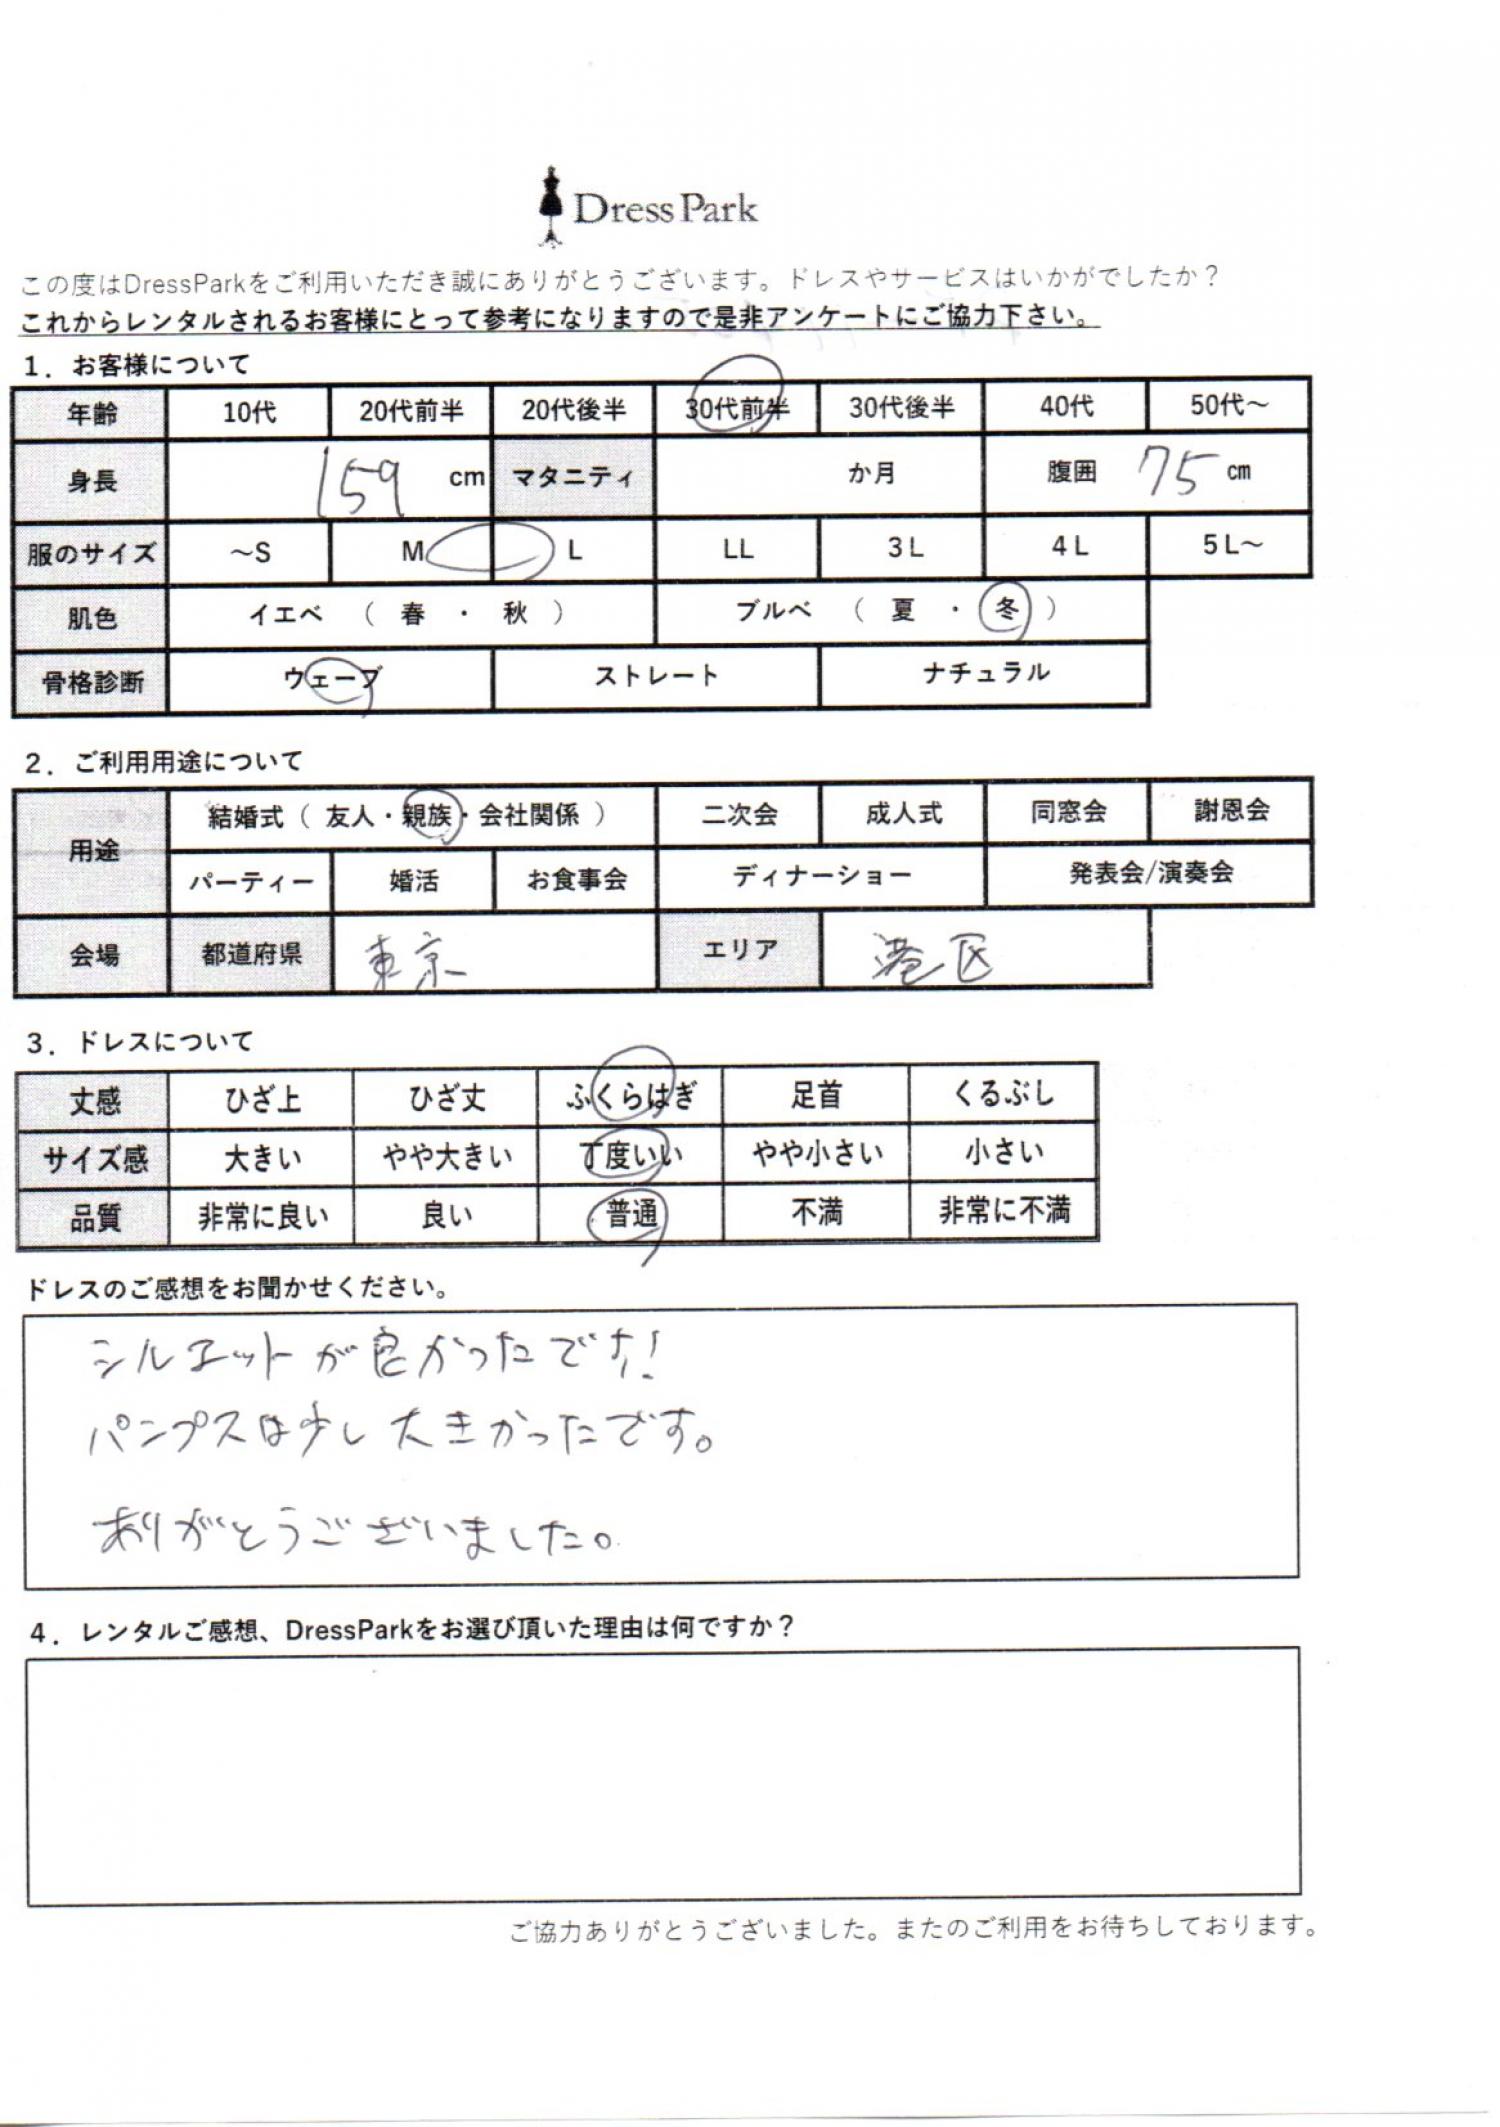 Dress Park
この度はDressParkをご利用いただき誠にありがとうございます。ドレスやサービスはいかがでしたか？
これからレンタルされるお客様にとって参考になりますので是非アンケートにご協力下さい。
１．お客様について
年齢 10代 20代前半 20代後半 30代前半 30代後半 40代 50代～
身長 159 cm マタニティ か月 腹囲 75 cm
服のサイズ ～S M L LL 3L 4L 5L～
肌色 イエベ （ 春 ・ 秋 ） ブルベ （ 夏 ・ 冬 ）
骨格診断 ウェーブ ストレート ナチュラル
２．ご利用用途について
用途 結婚式（ 友人・親族・会社関係 ） 二次会 成人式 同窓会 謝恩会
パーティー 婚活 お食事会 ディナーショー 発表会/演奏会
会場 都道府県 東京 エリア 港区
３．ドレスについて
丈感 ひざ上 ひざ丈 ふくらはぎ 足首 くるぶし
サイズ感 大きい やや大きい 丁度いい やや小さい 小さい
品質 非常に良い 良い 普通 不満 非常に不満
ドレスのご感想をお聞かせください。
シルエットが良かったです！
パンプスは少し大きかったです。
ありがとうございました。
４．レンタルご感想、DressParkをお選び頂いた理由は何ですか？
ご協力ありがとうございました。またのご利用をお待ちしております。